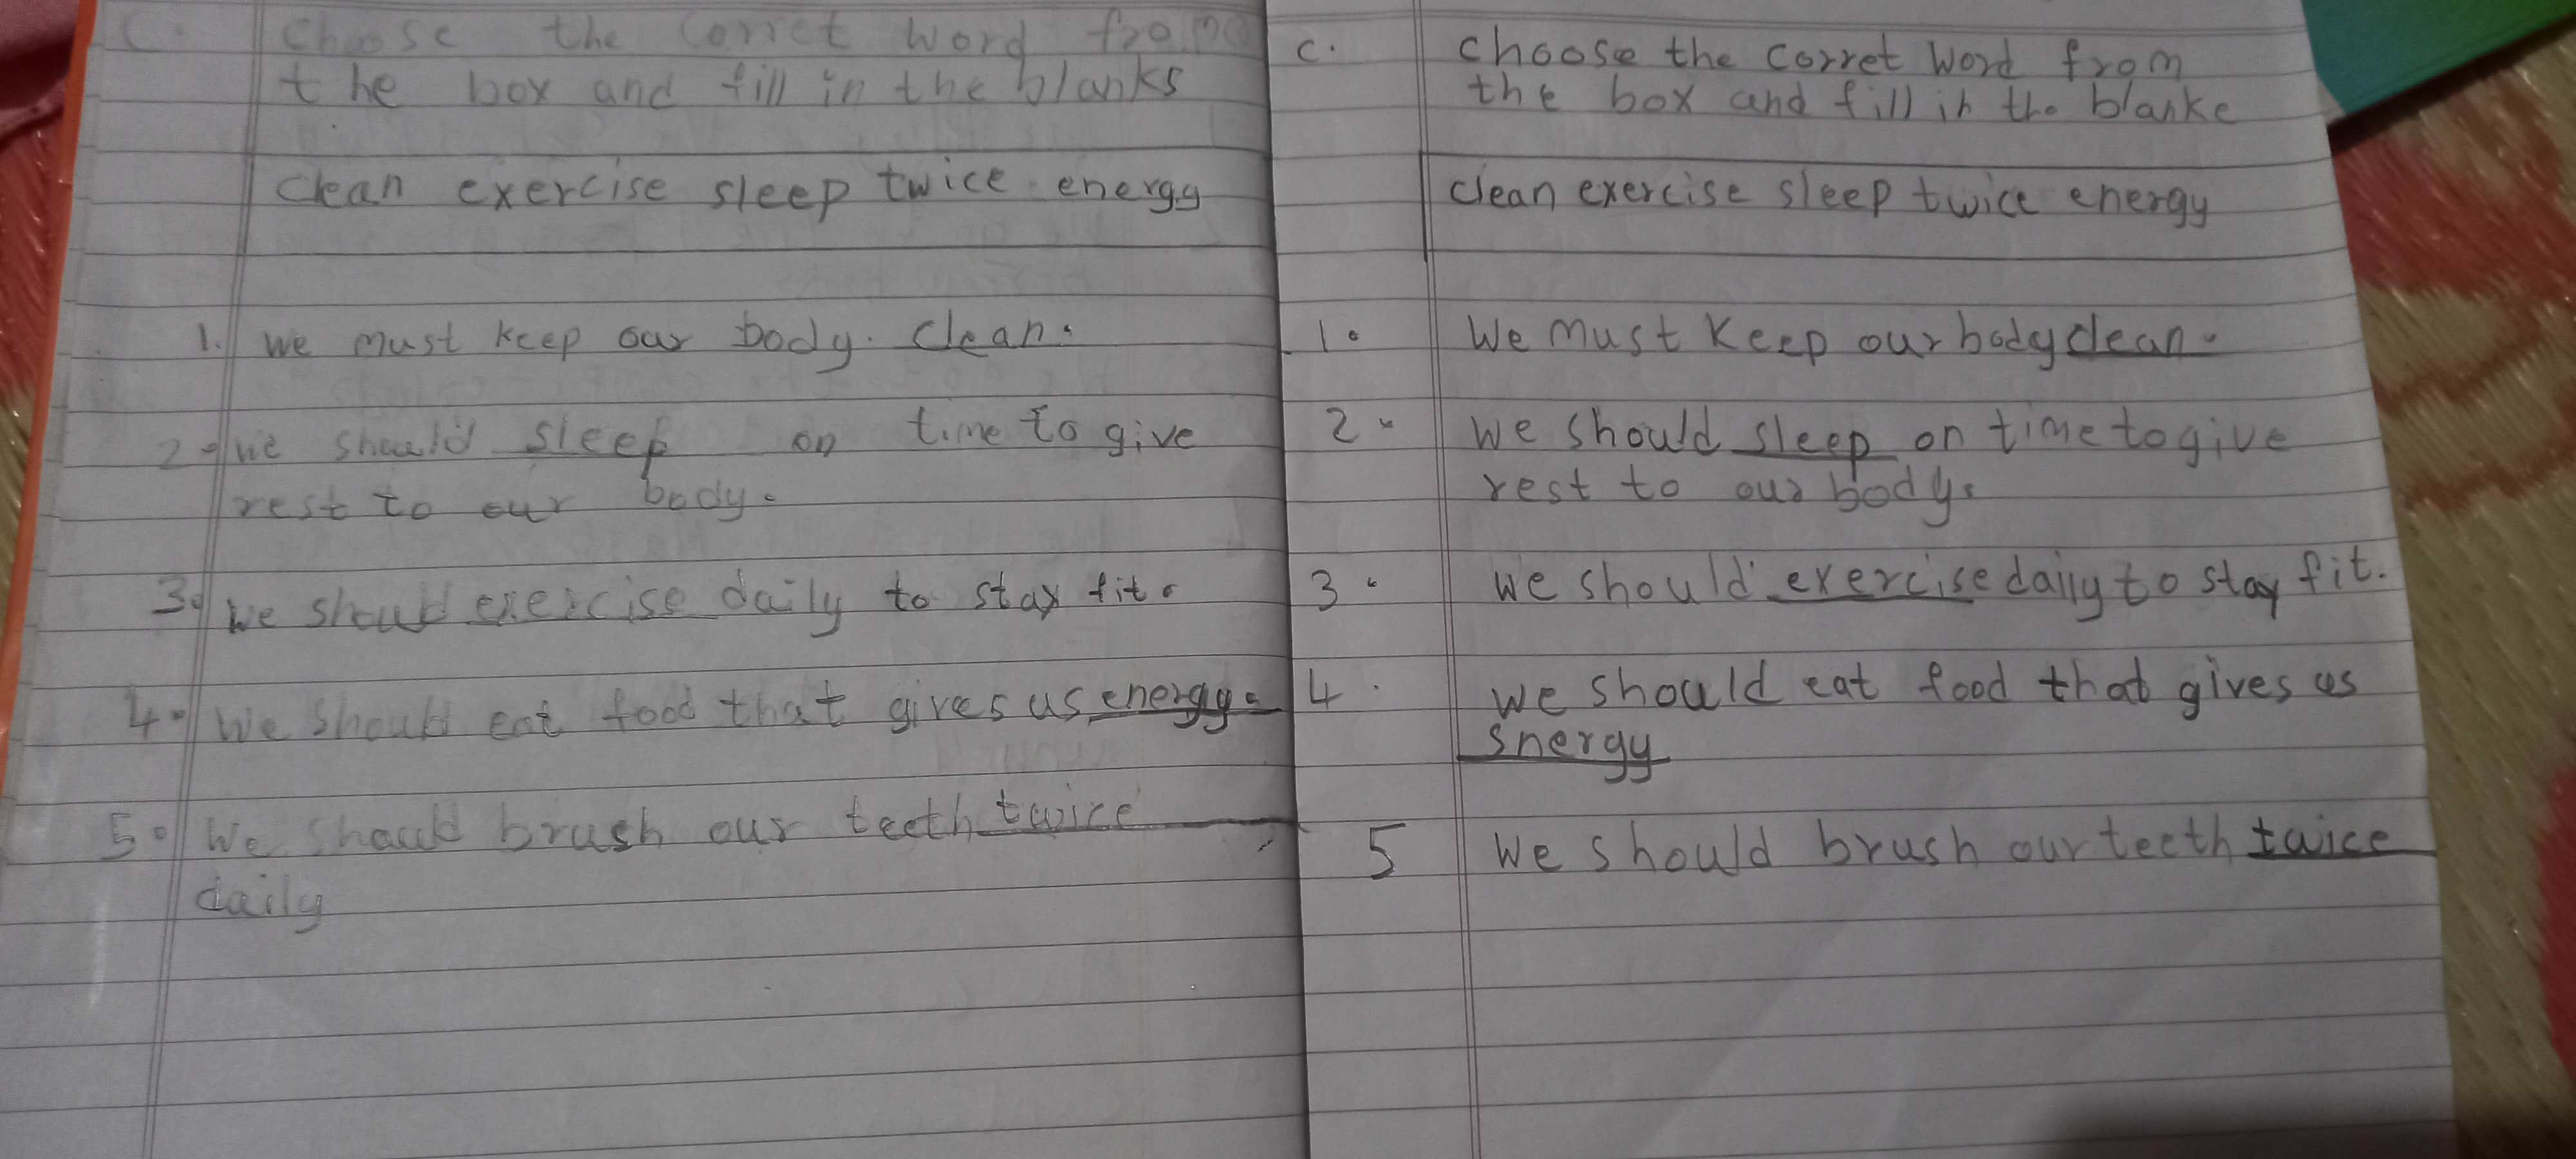 C. Choose the corret word from
the box and fill in the blanks
clean exercise sleep twice energy
1. we must keep our body. clean.
2. we should sleep on time to give
rest to our body.
3. we should exercise daily to stay fit.
4. we should eat food that gives us energy.
5. we should brush our teeth twice
daily
C. choose the corret word from
the box and fill in the blanke
clean exercise sleep twice energy
1. We must keep our body clean.
2. we should sleep on time to give
rest to our body.
3. we should exercise daily to stay fit.
4. we should eat food that gives us
snergy
5 we should brush our teeth twice